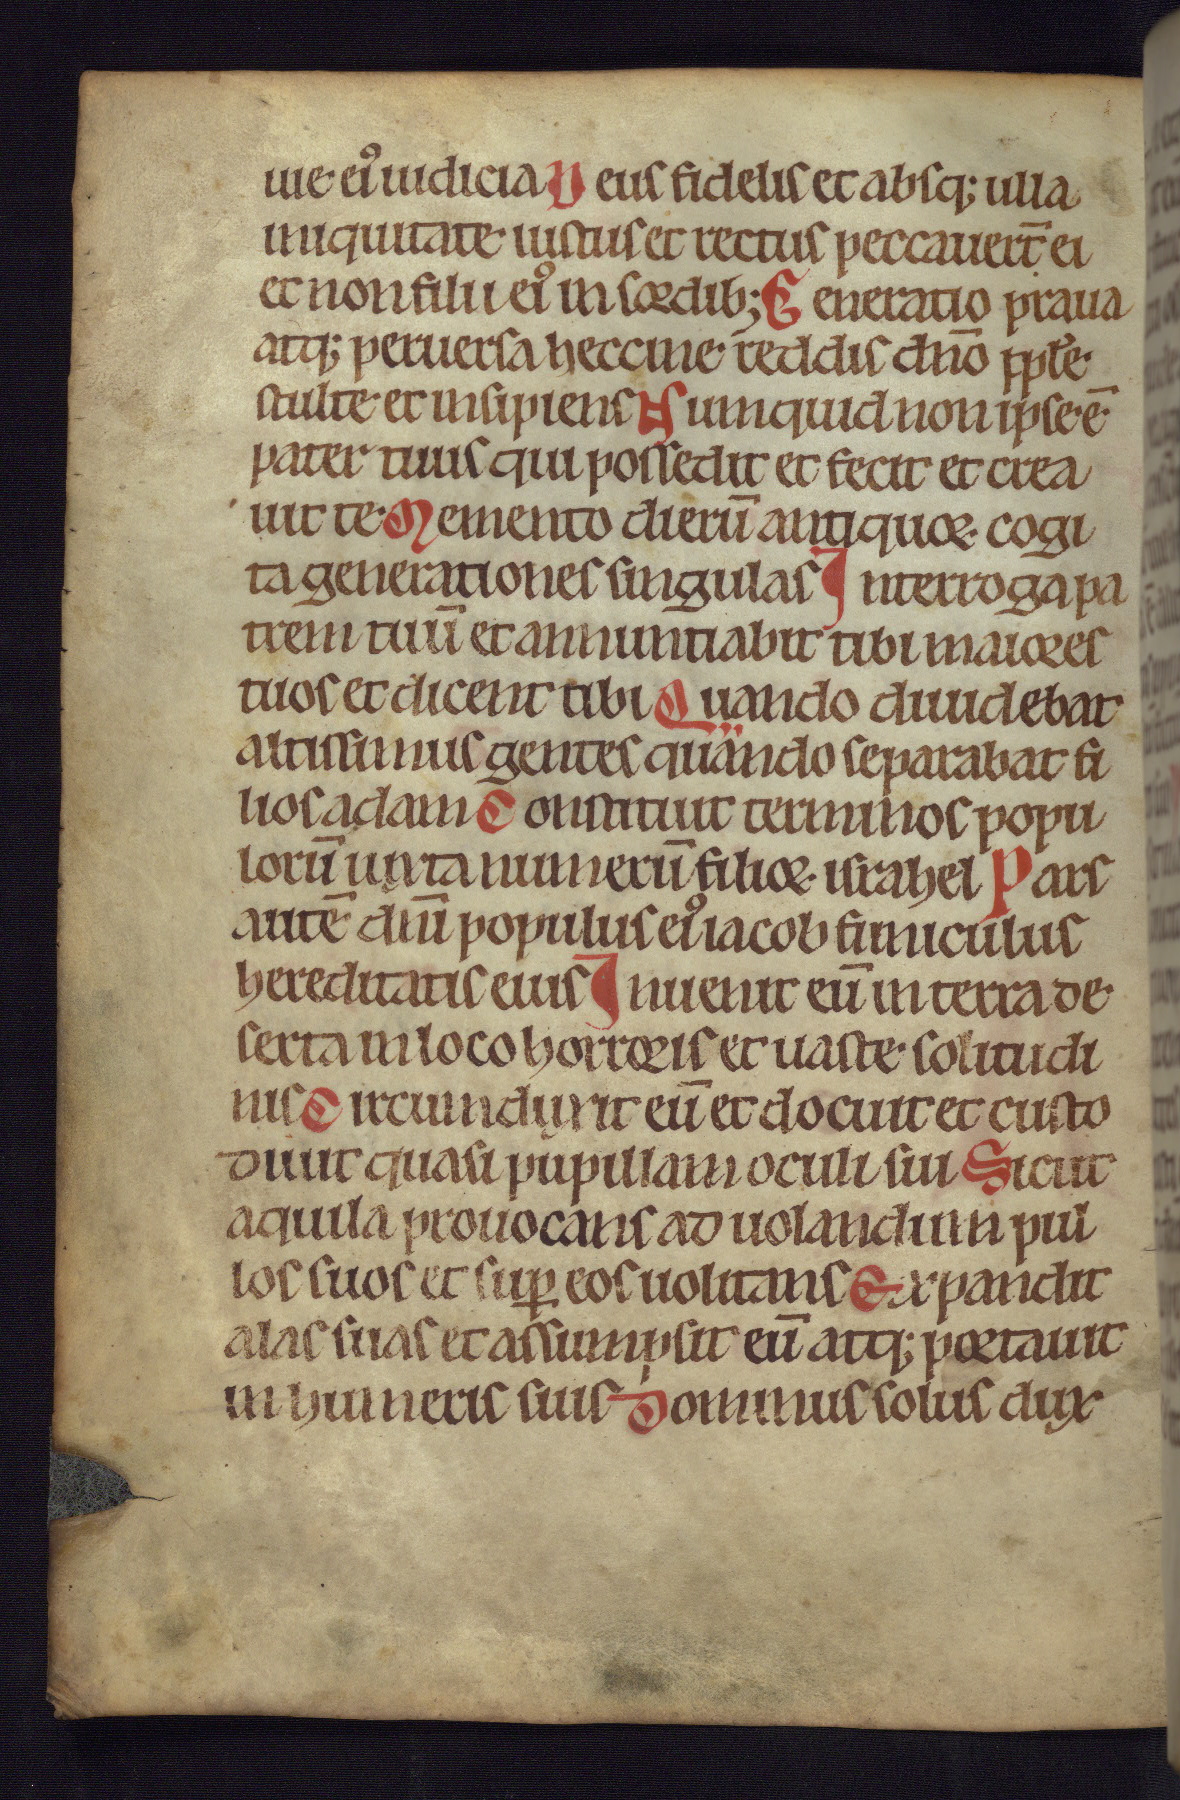 uie ei⁹ iudicia D eus fidelis et absq; ulla
iniquitate iustus et rectus peccauert̄ ei
et non filii ei⁹ in sordib; G eneratio praua
atq; peruersa heccine reddis dn̄o pp̄le
stulte et insipiens N umquid non ipse ē
pater tuus qui possedit et fecit et crea
uit te M emento dierū antiquoꝝ cogi
ta generationes singulas I nterroga pa
trem tuū et annuntiabit tibi maiores
tuos et dicent tibi Q uando diuidebat
altissimus gentes quando separabat fi
lios adam C onstituit terminos popu
lorū iuxta numerū filioꝝ israhel P ars
autē dn̄i populus ei⁹ iacob funiculus
hereditatis eius I nuenit eū in terra de
serta in loco horroris et uaste solitudi
nis C ircumduxit eū et docuit et custo
diuit quasi pupillam oculi sui Sicut
aquila prouocans ad uolandum pul
los suos et suꝑ eos uolitans Expandit
alas suas et assumpsit eū atq; portauit
in humeris suis Dominus solus dux